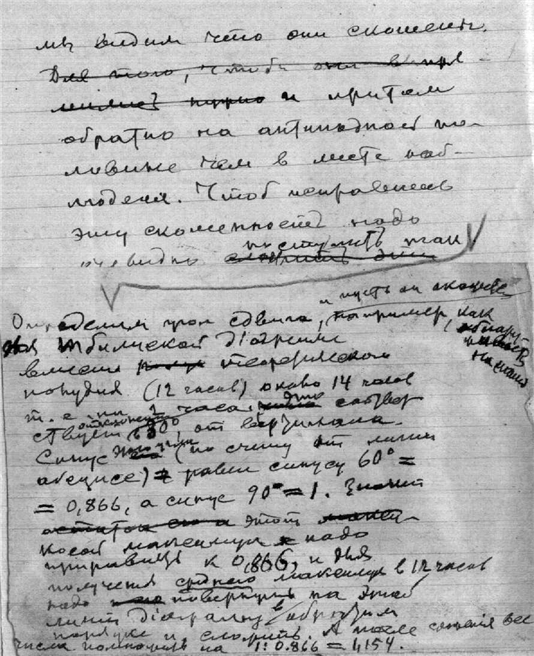 мы видим что они скошены.
Для того, чтобы они выпря-
мились нужно и притом
обратно на антиподной по-
ловине чем в месте наб-
людения. Чтоб исправить
эту скошенность надо
очевидно поступить так
и пусть он окажется
Определим угол сдвига, например как
для Тбилисской диаграммы
вместо теоретического
полудня (12 часов) около 14 часов
т. е. на 2 часа, это соответ
ствует отклонению в 30° от вертикала.
Синус (по счету от линии
абсцисс) равен синусу 60° =
= 0,866, а синус 90° = 1. Значит
этот
косой максимум надо
приравнять к 0,866, и для
получения среднего максимум в 12 часов
надо повернуть на этой
линии диаграмму обратным
порядке и сложить. А после сложения все
числа помножить на 1:0.866 = 1,154.